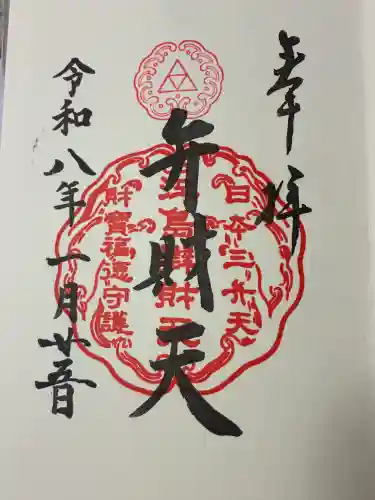 奉拝
弁財天
日本三弁天
江島辨財天
財寳福徳守護
令和八年一月廿五日